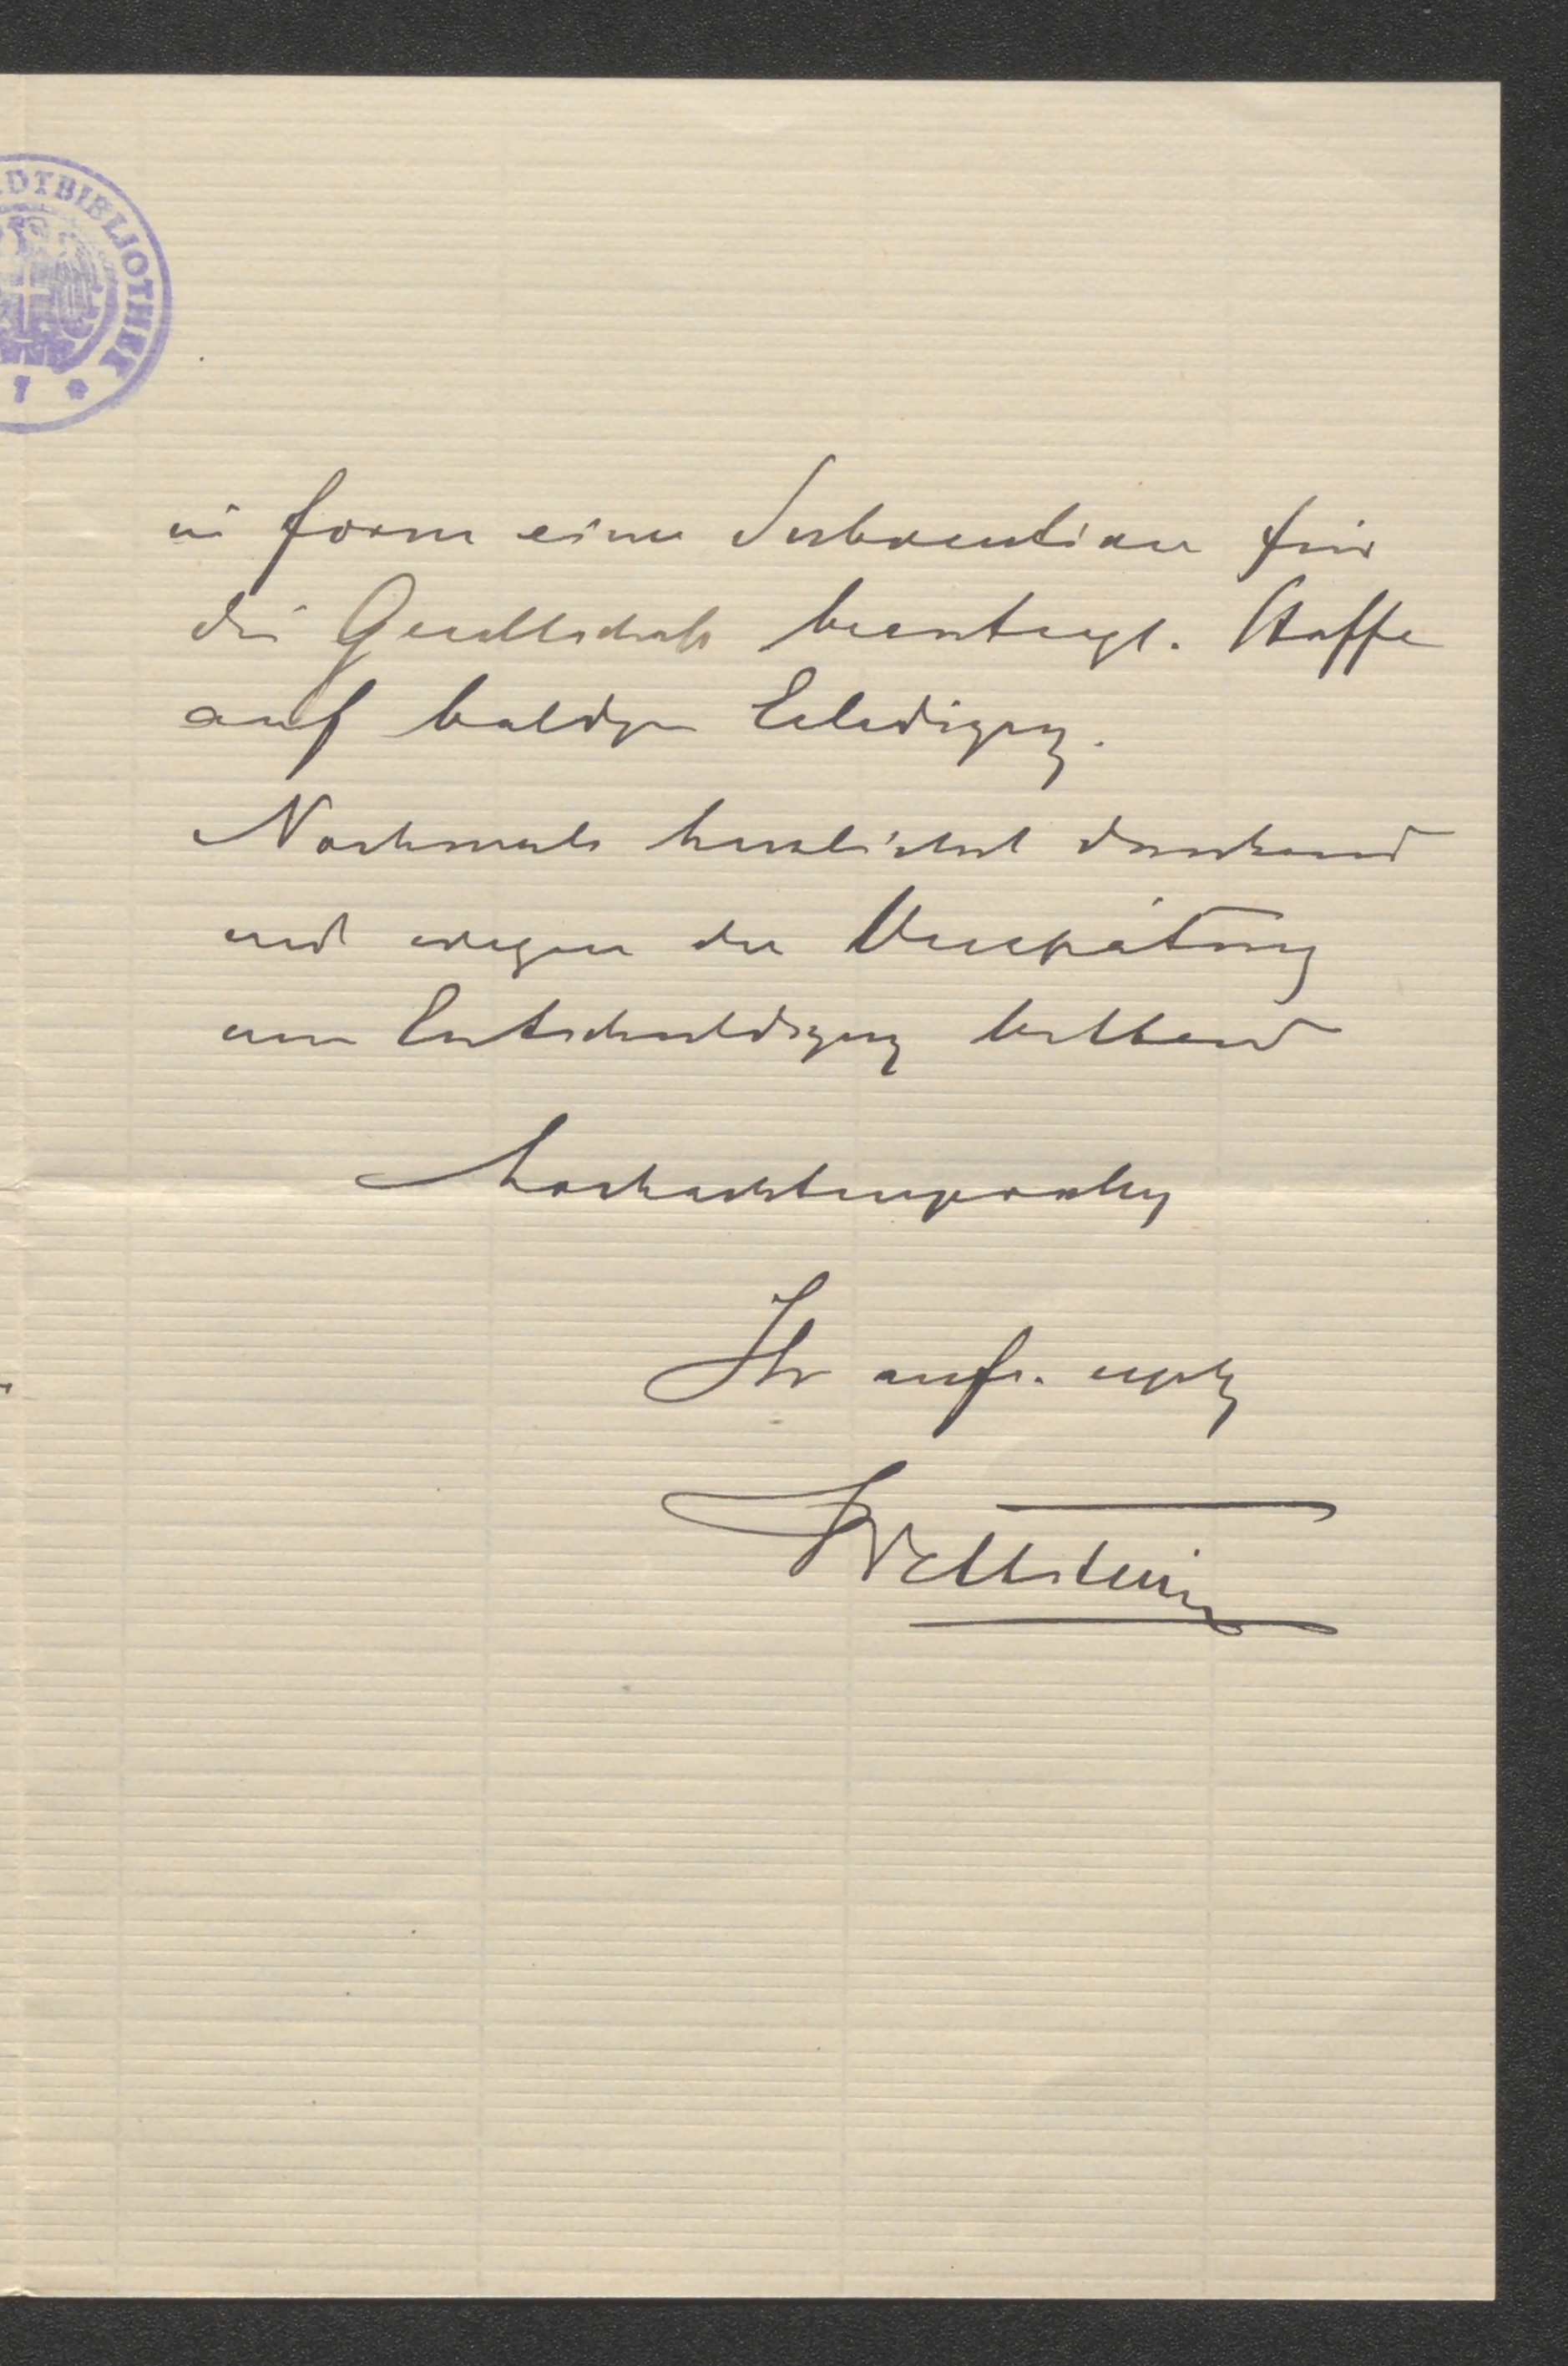 DTBIBLIOTHEK
in Form einer Subvention für
die Gesellschaft beantragt. Hoffe
auf baldige Erledigung.
Nochmals herzlichst dankend
und wegen der Verspätung
um Entschuldigung bittend
hochachtungsvollst
Ihr aufr. ergeb.
Wettstein